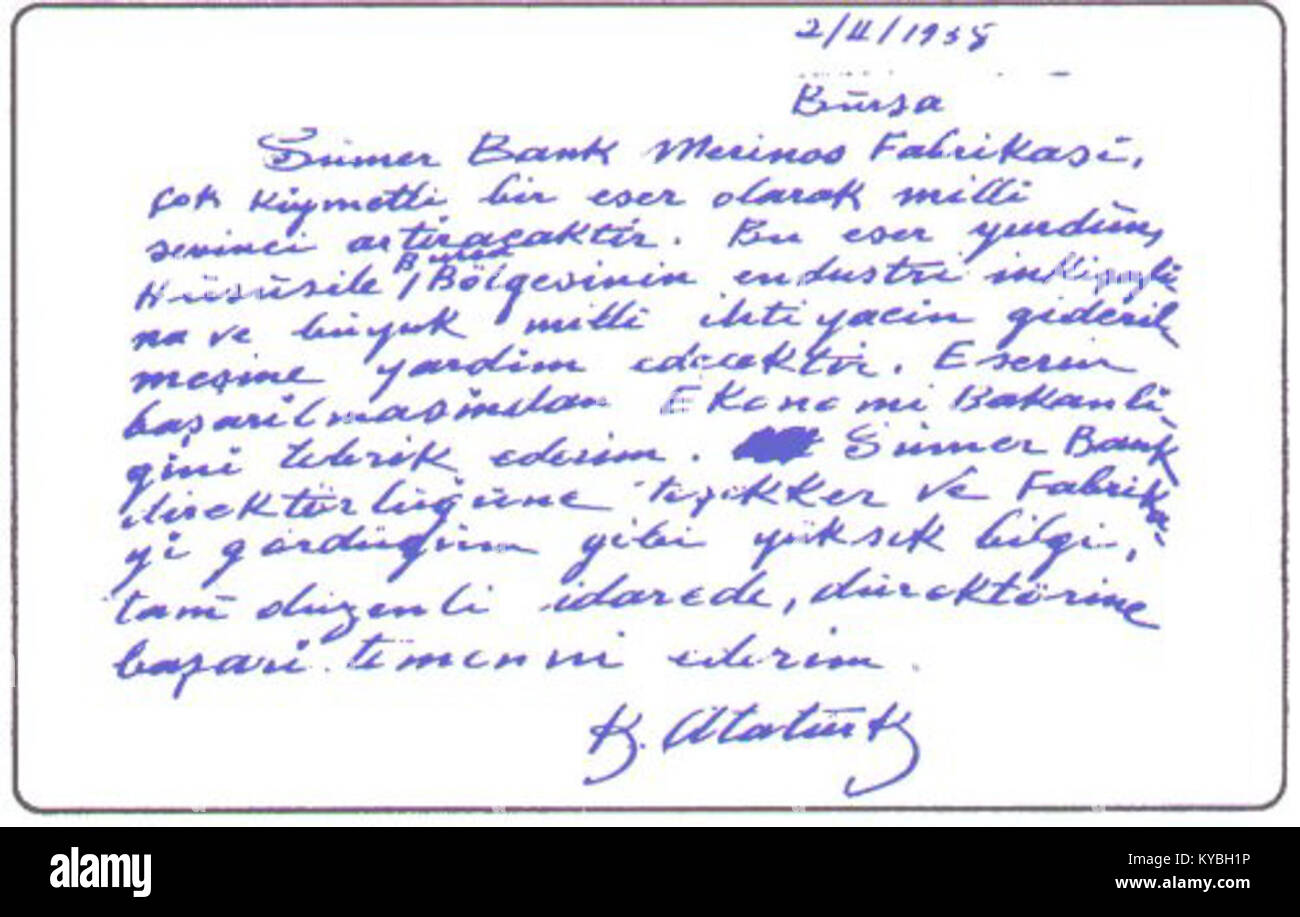 2/II/1938
Bursa
Sümer Bank Merinos Fabrikasi,
çok kiymetli bir eser olarak milli
sevinci artiracaktir. Bu eser yurdun,
Hususile Bursa Bölgesinin endustri inkişafi
na ve büyük milli ihtiyacin gideril
mesine yardim edecektir. Eserin
başarilmasindan Ekonomi Bakanli
gini tebrik ederim. Sümer Bank
direktörlüğüne teşekker ve Fabrika
yi gördüğüm gibi yüksek bilgi,
tam düzenli idarede, direktörine
başari temenni ederim.
K. Atatürk
alamy
Image ID: KYBH1P
www.alamy.com